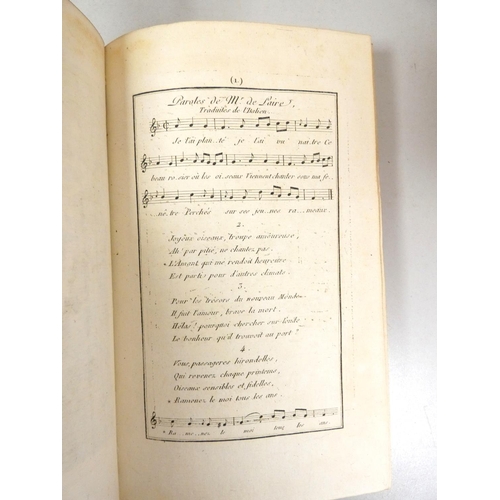 (1.)
Paroles de Mr. de Laire,
Traduites de l'Italien.
Je l'ai plan.. té je l'ai vu nai.. tre Ce
beau ro.. sier où les oi.. seaux Viennent chanter sous ma fe..
..nê.. tre Perchés sur ses jeu.. nes ra.. meaux.
2
Joyeux oiseaux, troupe amoureuse,
Ah! par pitié, ne chantez pas.
L'Amant qui me rendoit heureuse
Est parti pour d'autres climats.
3
Pour les trésors du nouveau Monde
Il fuit l'amour, brave la mort.
Hélas! pourquoi chercher sur l'onde
Le bonheur qu'il trouvoit au port?
4
Vous, passageres hirondelles,
Qui revenez chaque printems,
Oiseaux sensibles et fidelles,
Ramenez le moi tous les ans.
Ra.. me.. nez le moi tous les ans.